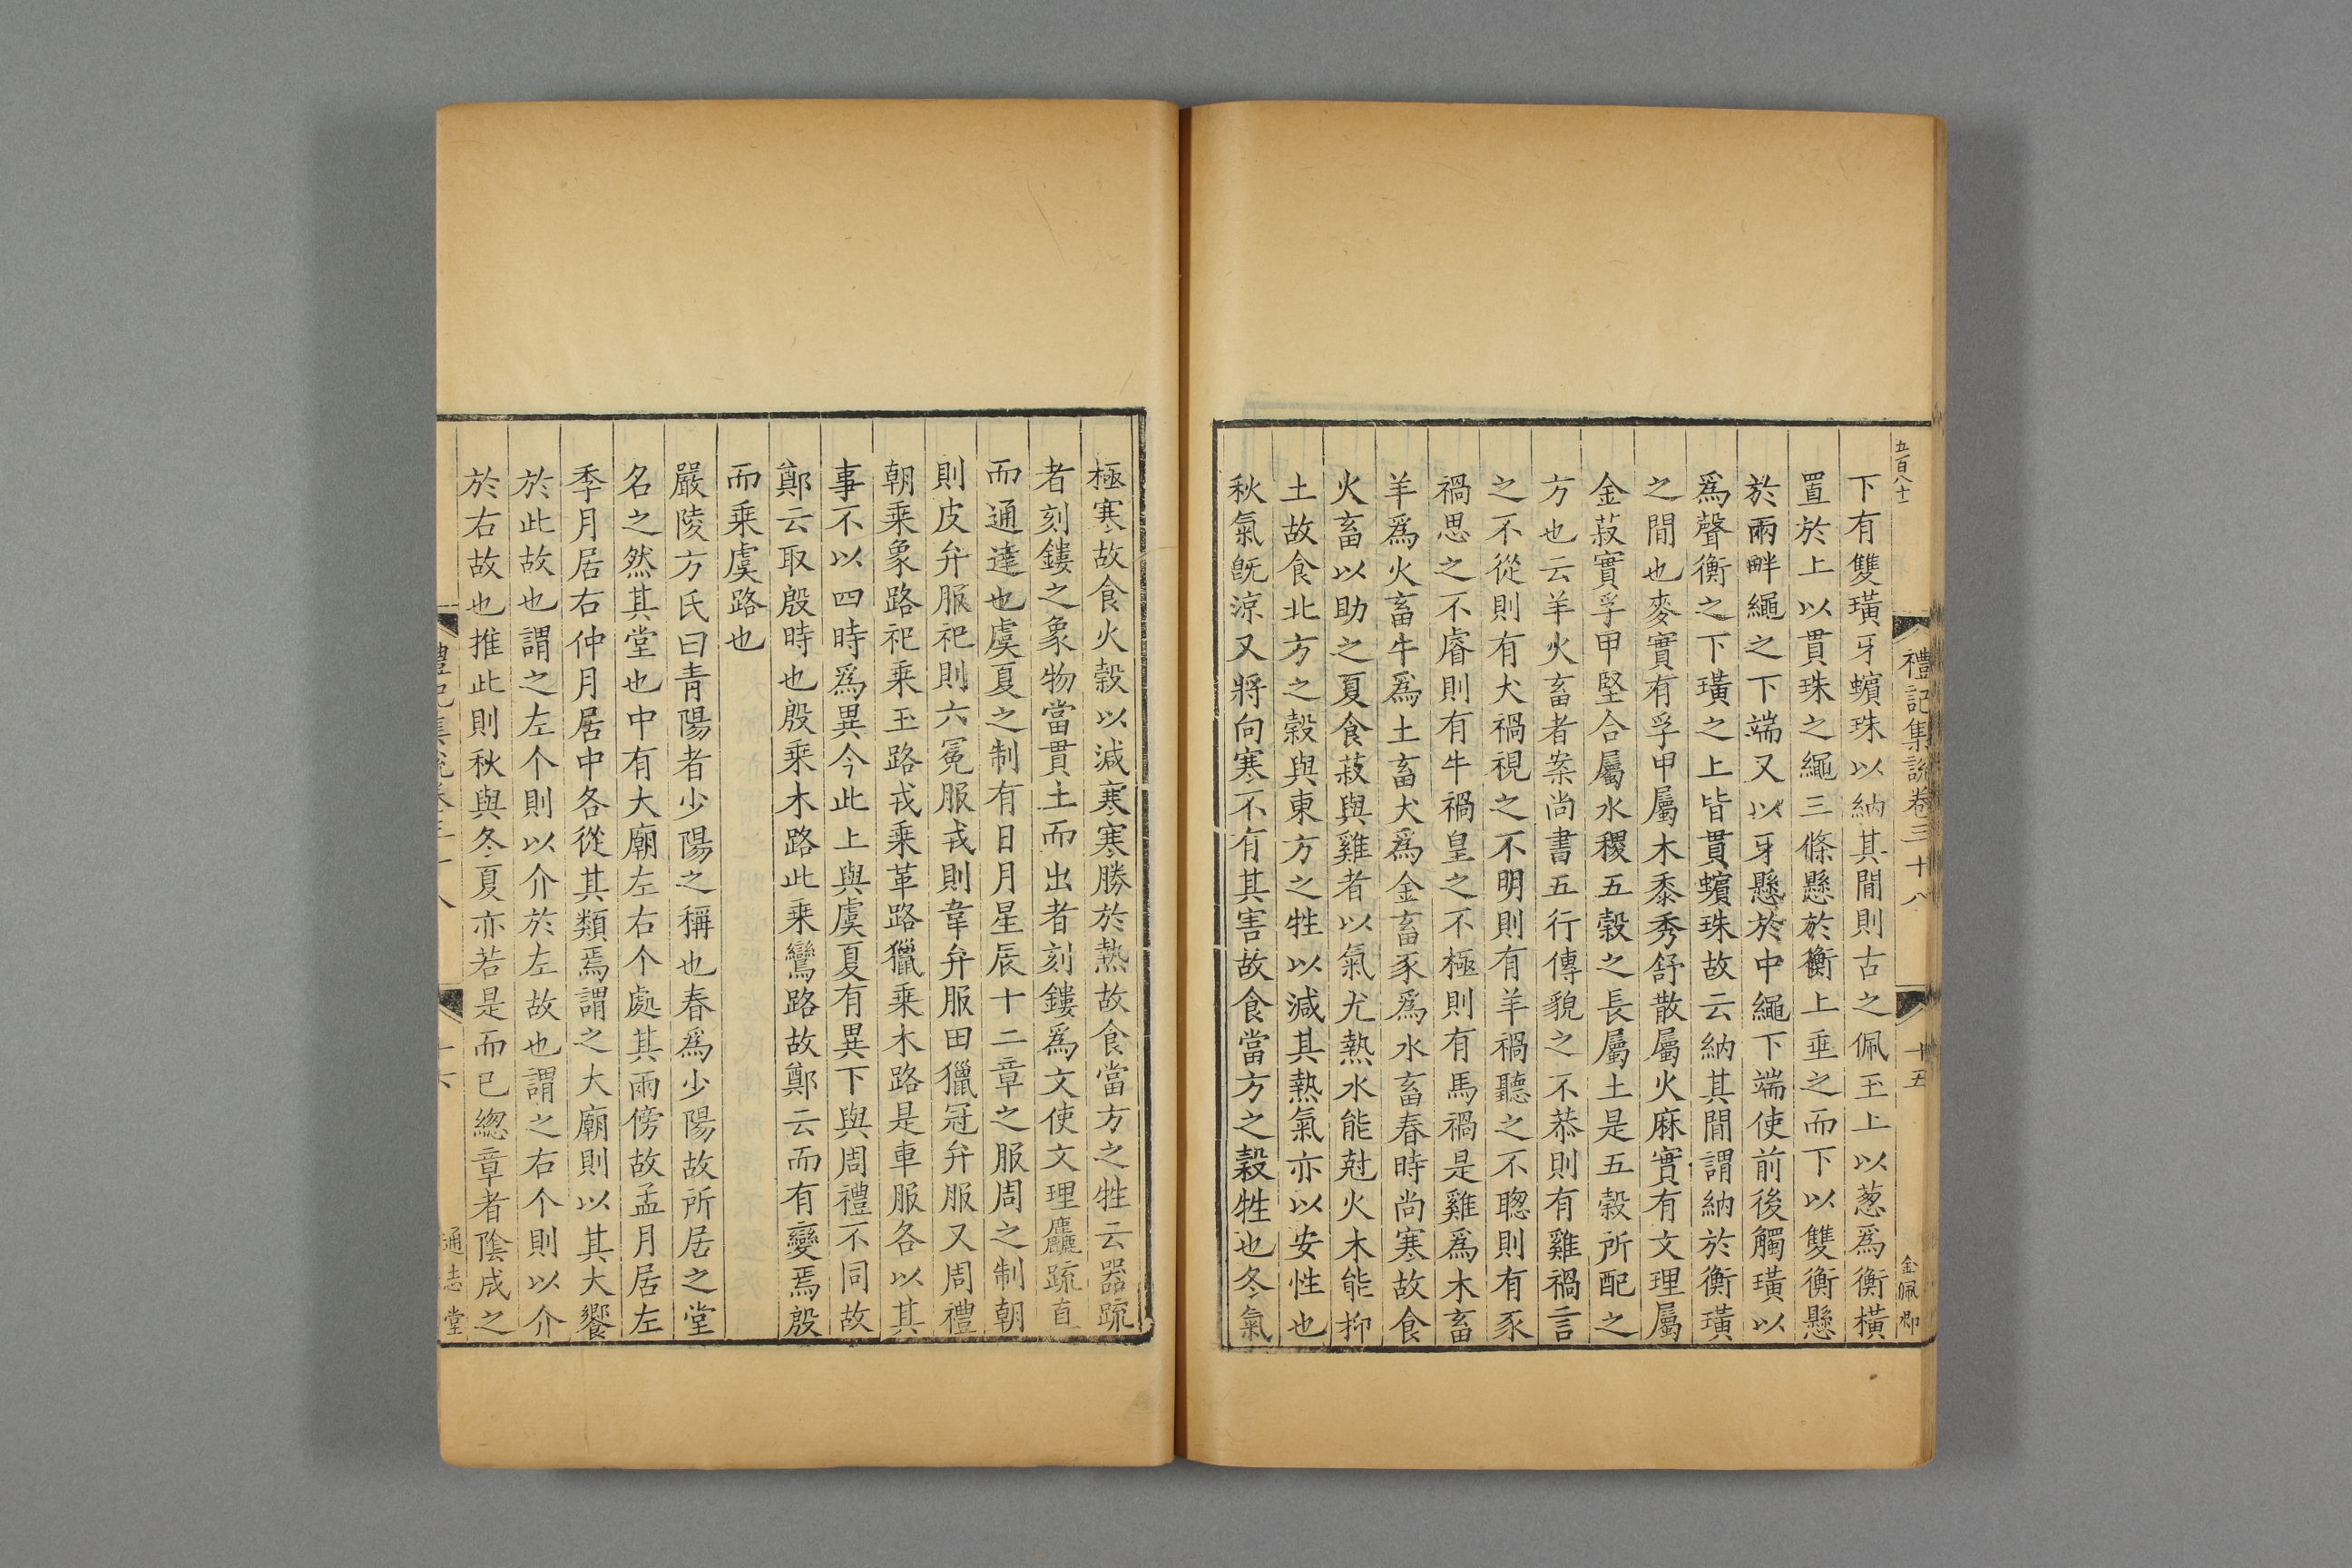 五百八十
禮記集說卷三十八
十五
金佩卿
下有雙璜牙蠙珠以納其間則古之佩玉上以葱爲衡橫
置於上以貫珠之繩三條懸於衡上垂之而下以雙衡懸
於兩畔繩之下端又以牙懸於中繩下端使前後觸璜以
爲聲衡之下璜之上皆貫蠙珠故云納其間謂納於衡璜
之間也麥實有孚甲屬木黍秀舒散屬火麻實有文理屬
金菽實孚甲堅合屬水稷五穀之長屬土是五穀所配之
方也云羊火畜者案尚書五行傳貌之不恭則有雞禍言
之不從則有犬禍視之不明則有羊禍聽之不聰則有豕
禍思之不睿則有牛禍皇之不極則有馬禍是雞爲木畜
羊爲火畜牛爲土畜犬爲金畜豕爲水畜春時尚寒故食
火畜以助之夏食菽與雞者以氣尤熱水能尅火木能抑
土故食北方之穀與東方之牲以減其熱氣亦以安性也
秋氣旣涼又將向寒不有其害故食當方之穀牲也冬氣
極寒故食火穀以減寒寒勝於熱故食當方之牲云器疏
者刻鏤之象物當貫土而出者刻鏤爲文使文理麤疏直
而通達也虞夏之制有日月星辰十二章之服周之制朝
則皮弁服祀則六冕服戎則韋弁服田獵冠弁服又周禮
朝乘象路祀乘玉路戎乘革路獵乘木路是車服各以其
事不以四時爲異今此上與虞夏有異下與周禮不同故
鄭云取殷時也殷乘木路此乘鸞路故鄭云而有變焉殷
而乘虞路也
嚴陵方氏曰青陽者少陽之稱也春爲少陽故所居之堂
名之然其堂也中有大廟左右个處其兩傍故孟月居左
季月居右仲月居中各從其類焉謂之大廟則以其大饗
於此故也謂之左个則以介於左故也謂之右个則以介
於右故也推此則秋與冬夏亦若是而已緫章者陰成之
禮記集說卷三十八
十六
通志堂